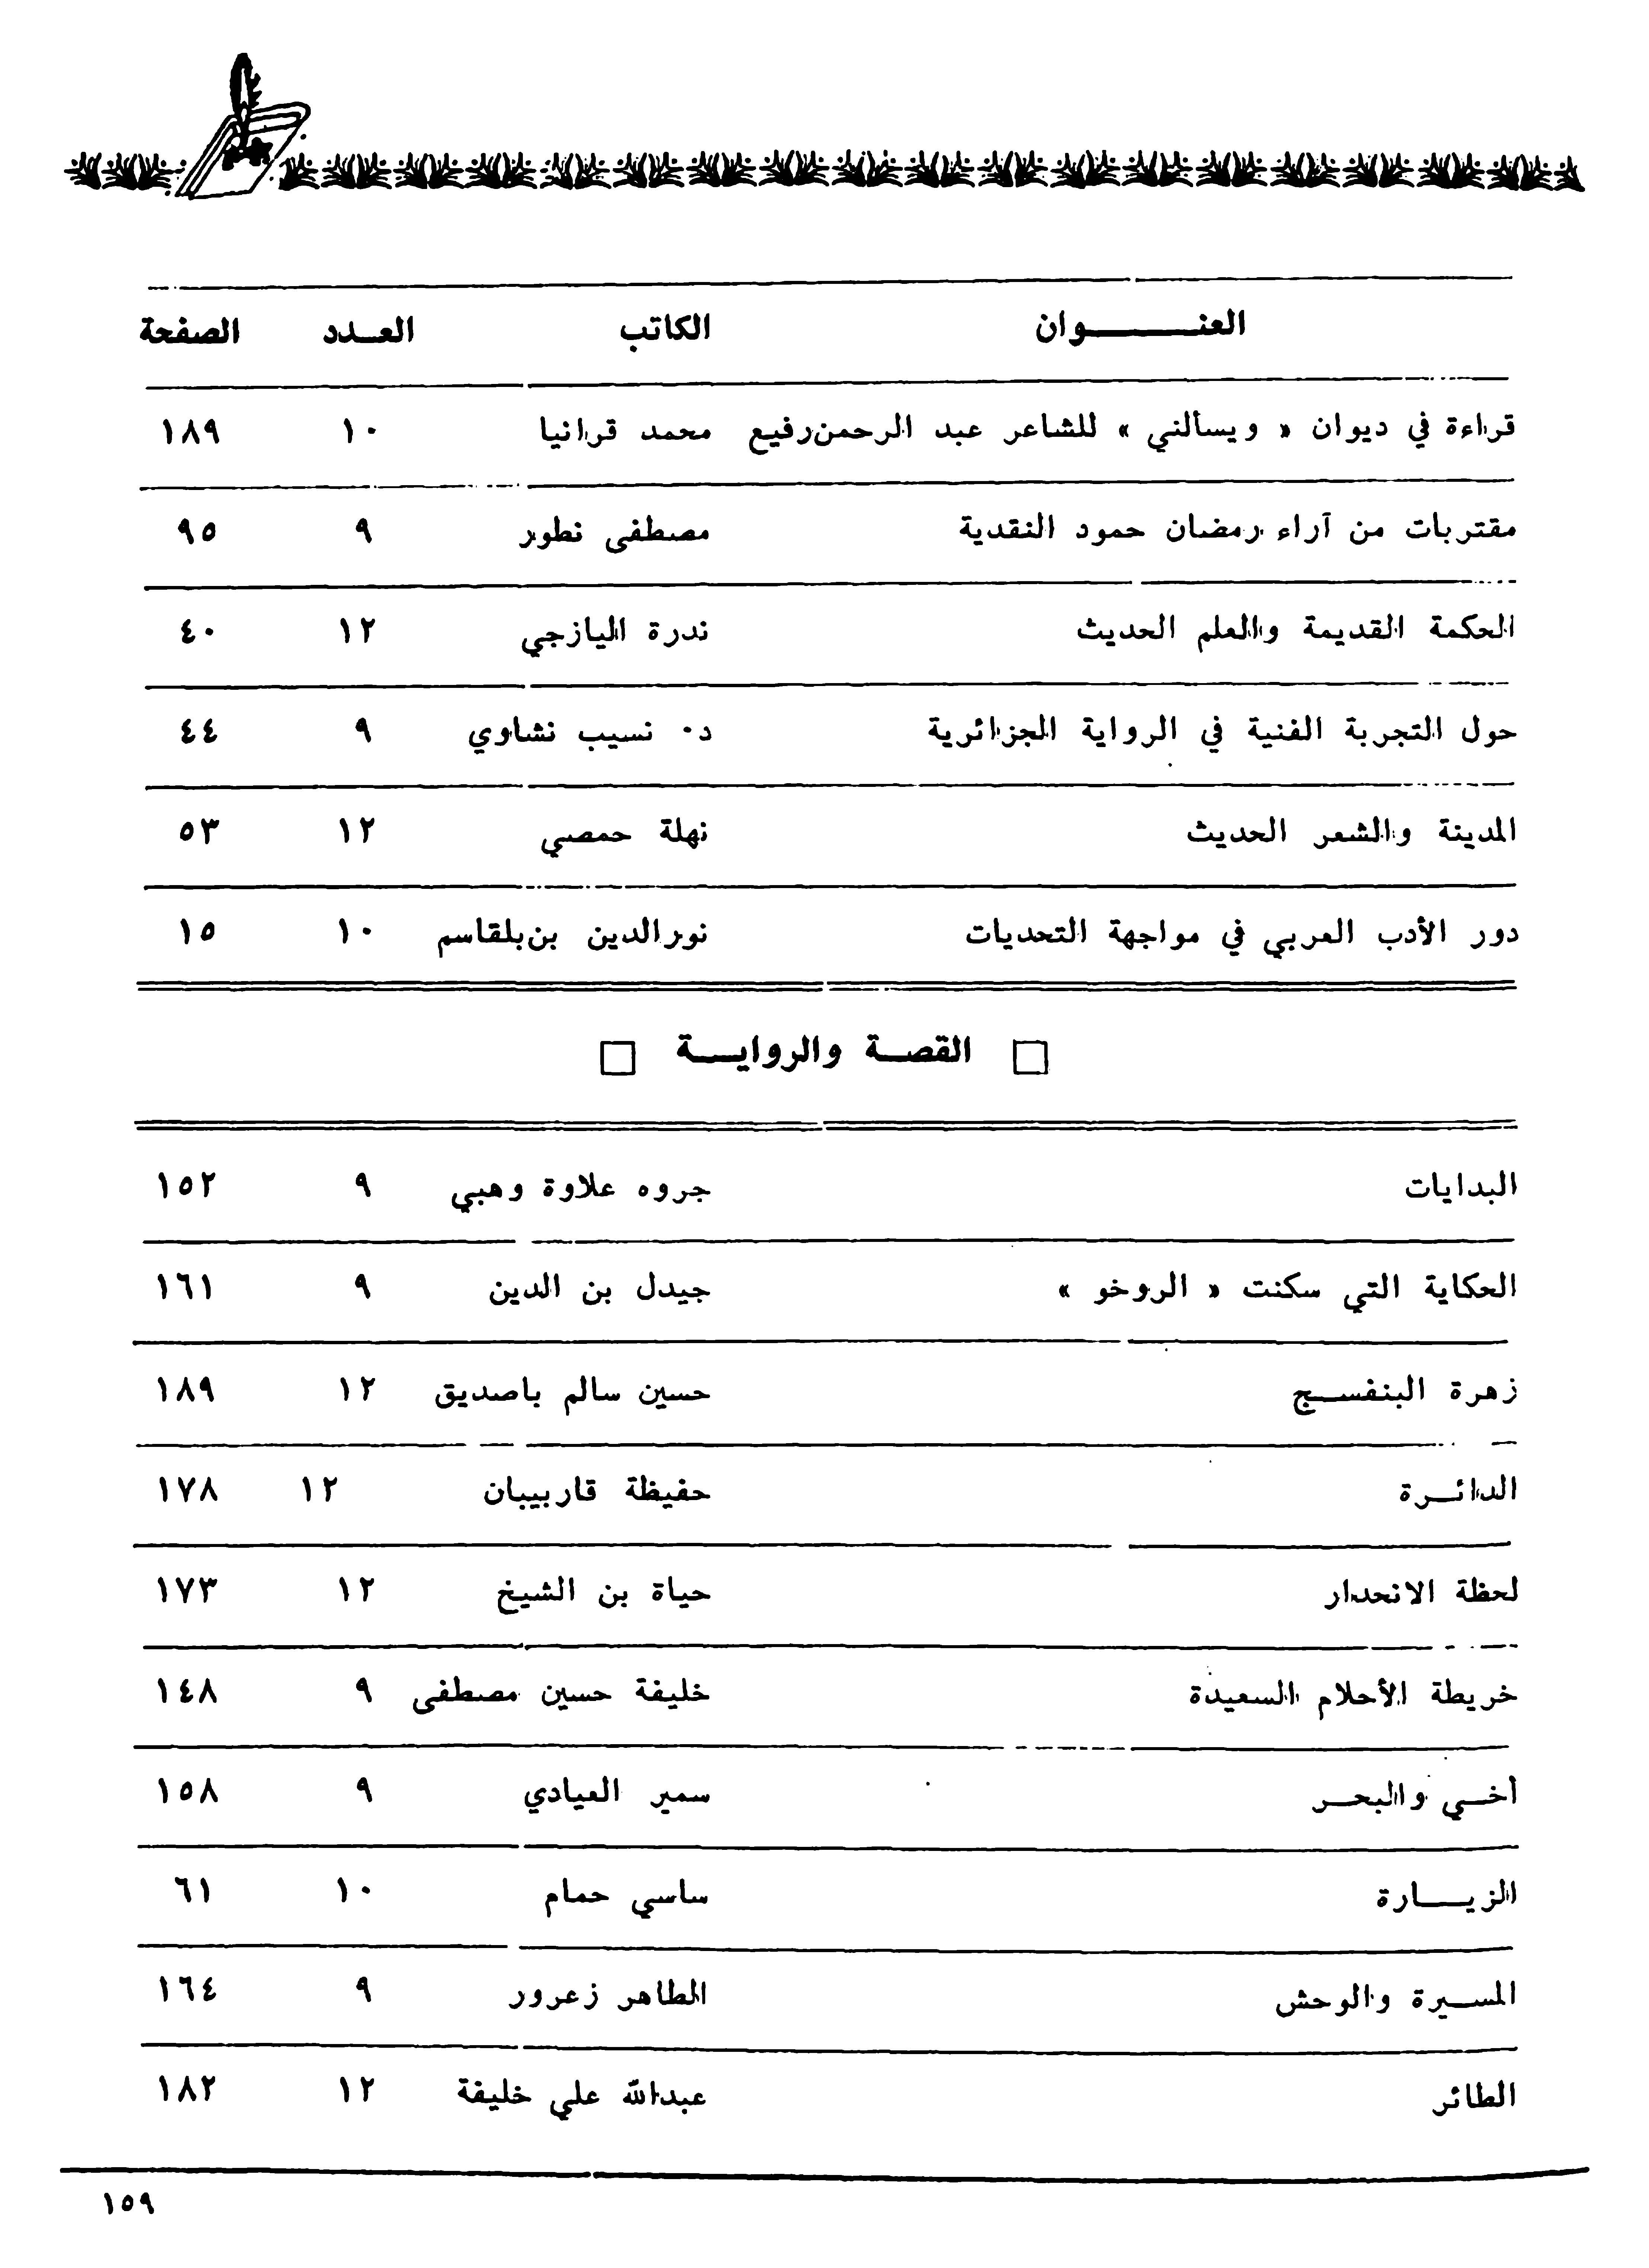 العنـــــــوان الكاتب العـدد الصفحة
قراءة في ديوان « ويسألني » للشاعر عبد الرحمن رفيع محمد قرانيا ١٠ ١٨٩
مقتربات من آراء رمضان حمود النقدية مصطفى نطور ٩ ٩٥
الحكمة القديمة والعلم الحديث ندرة اليازجي ١٢ ٤٠
حول التجربة الفنية في الرواية الجزائرية د٠ نسيب نشاوي ٩ ٤٤
المدينة والشعر الحديث نهلة حمصي ١٢ ٥٣
دور الأدب العربي في مواجهة التحديات نورالدين بن بلقاسم ١٠ ١٥
□ القصــة والروايــــة □
البدايات جروه علاوة وهبي ٩ ١٥٢
الحكاية التي سكنت « الروخو » جيدل بن الدين ٩ ١٦١
زهرة البنفســج حسين سالم باصديق ١٢ ١٨٩
الدائــرة حفيظة قاربيبان ١٢ ١٧٨
لحظة الانحدار حياة بن الشيخ ١٢ ١٧٣
خريطة الأحلام السعيدة خليفة حسين مصطفى ٩ ١٤٨
أخــي والبحــر سمير العيادي ٩ ١٥٨
الزيــــارة ساسي حمام ١٠ ٦١
المســيرة والوحش الطاهر زعرور ٩ ١٦٤
الطائر عبدالله علي خليفة ١٢ ١٨٢
١٥٩